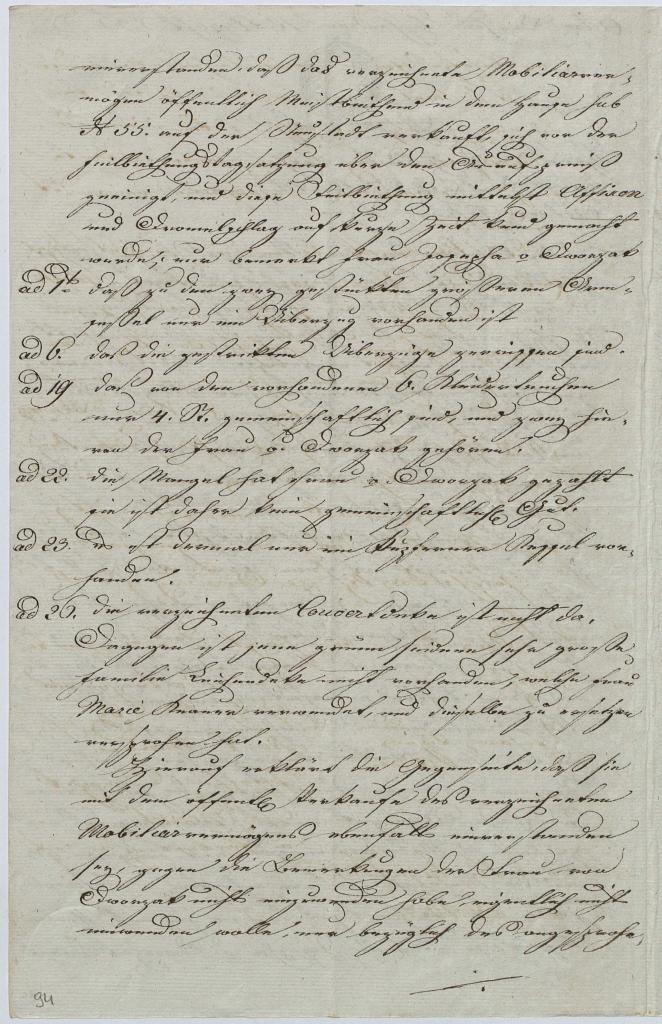 einverstanden, daß das verzeichnete Mobiliarver-
mögen öffentlich Meistbiethend in dem Hause sub
N 55. auf der Neustadt verkauft, sich vor der
Feilbiethungstagsatzung über den Ausrufspreiß
geeinigt, und diese Feilbiethung mittelst Affixen
und Tromelschlag auf kurze Zeit kund gemacht
werde; nur bemerkt Frau Josepha v Dworzak
ad 1t daß zu den zwey gestickten größeren Arm-
sessel nur ein Überzug vorhanden ist
ad 6. daß die gestrickten Überzüge zerrissen sind.
ad 19 daß von den vorhandenen 6. Kleidertruhen
nur 4. St. gemeinschaftlich sind, und zwey hie-
von der Frau v. Dworzak gehören.
ad 22. die Mangel hat Frau v. Dworzak gezahlt
sie ist daher kein gemeinschaftliches Gut.
ad 23. Es ist dermal nur ein kupferner Kessel vor-
handen.
ad 26. die verzeichneten Couvertdeke ist nicht da.
Dagegen ist jene grüne seidene sehr große
Familie vorhanden, welche Frau
Marie verwendet, und dieselbe zu ersetzen
versprochen hat.
Hierauf erklärt die Gegenseite, daß sie
mit dem öffentl Verkaufe des verzeichneten
Mobiliarvermögens ebenfalls einverstanden
sey, gegen die Bemerkungen der Frau von
Dworzak nichts einzuwenden habe, eigentlich nicht
einwenden wolle, nur bezüglich des angesproche-
./.
94